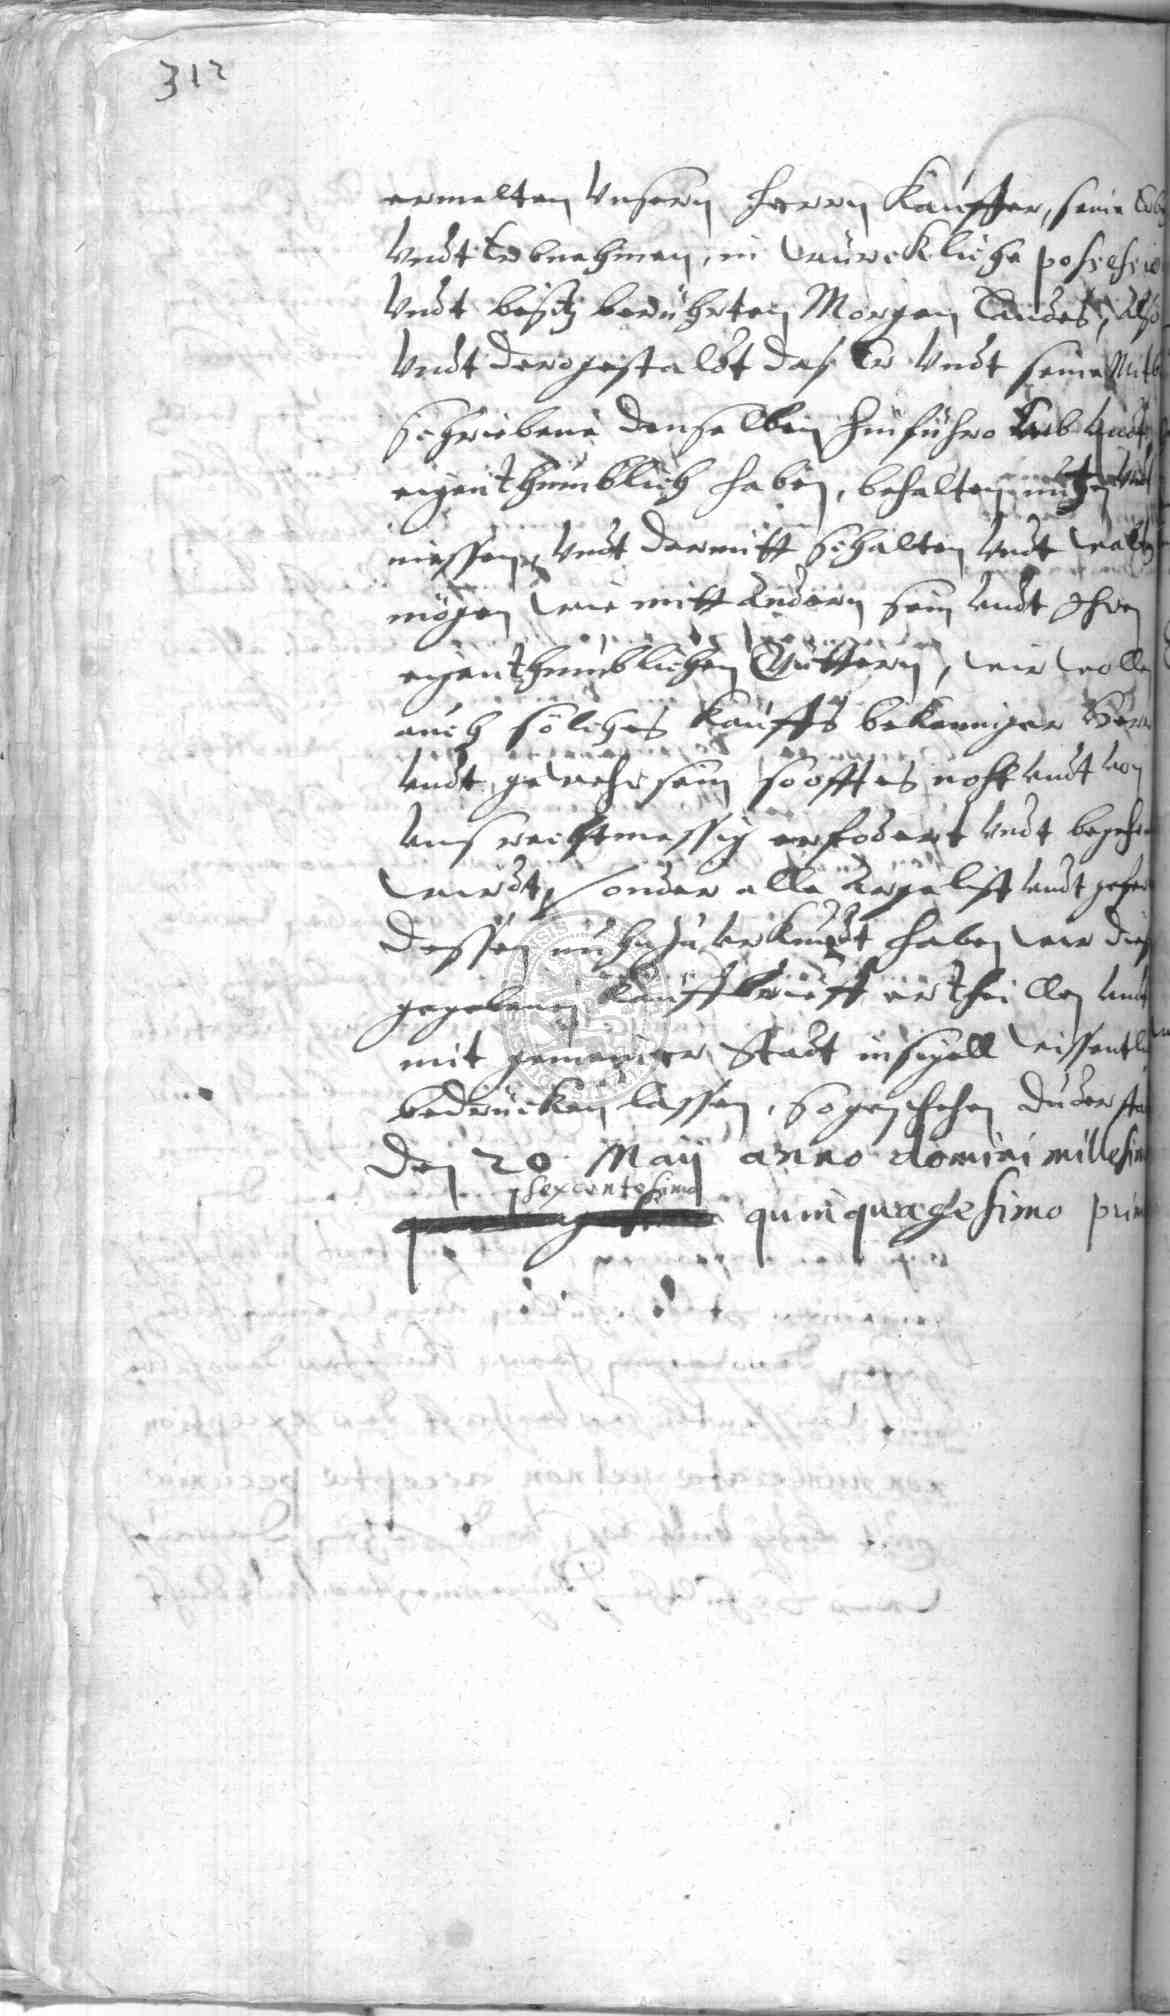 312
ermelten Unsern Herrn Kauffer, seine Erb
Undt Erbnehmen, in würckliche possessio
Undt besitz berührten Morgen Landes, Also
Undt dergestaldt daß Er Undt seine Mitb
schriebene denselben hinführo Erb Undt
eigenthümblich haben, behalten nutzen Undt
niessen, Undt darmitt schalten Undt walten
mögen wie mitt andern sein Undt Ihren
eigenthümblichen Güttern, wir wolle
auch solches Kauffs bekenniger Herr
Undt gewehr sein so offt es noht Undt von
Uns rechtmessig erfodert Undt begehr
wirdt, sonder alle argelist Undt gefer
Dessen nuhn zu Urkundt haben wir dies
gegebenen Kauffbrieff ertheillen Undt
mit gemeiner Stadt insigell wissentli
bedrucken lassen, so geschehen Duderstad
Den 20 Maij anno domini millesim
sexcentesimo
quinquagesimo prim